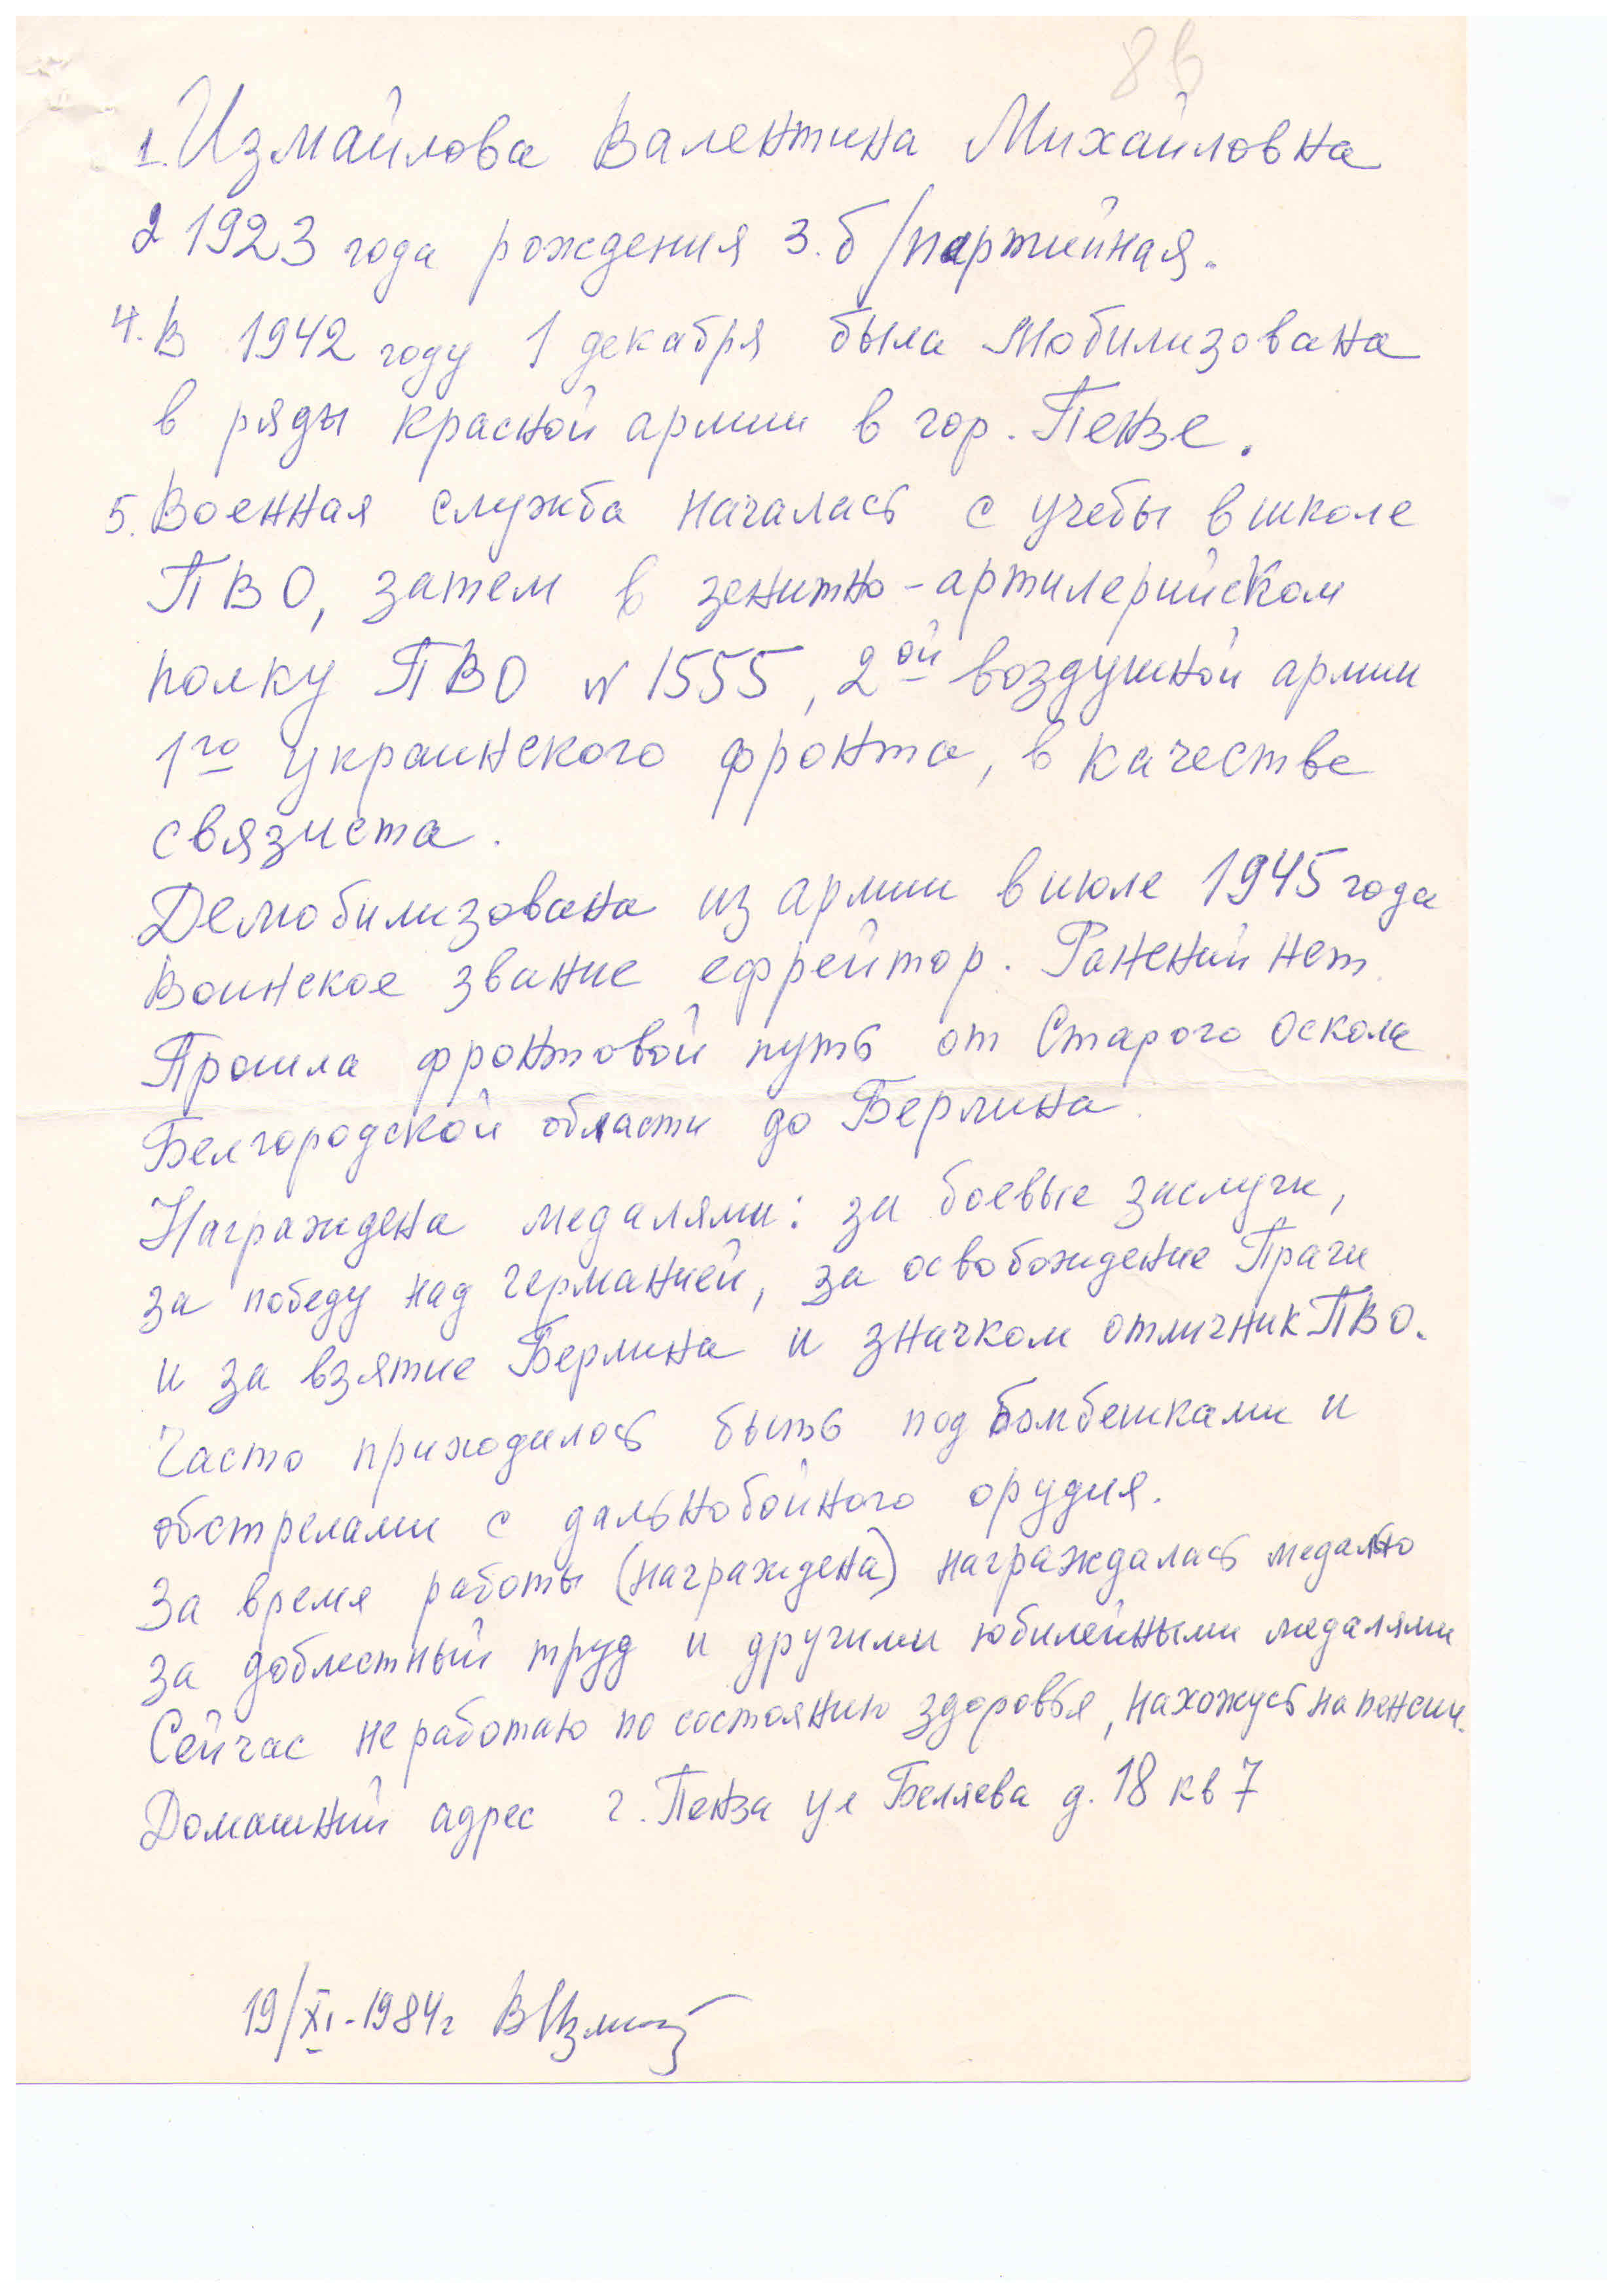 8в
1. Измайлова Валентина Михайловна
2 1923 года рождения 3. б/партийная.
4. В 1942 году 1 декабря была мобилизована
в ряды красной армии в гор. Пензе.
5. Военная служба началась с учебы в школе
ПВО, затем в зенитно-артилерийском
полку ПВО № 1555, 2ой воздушной армии
1го украинского фронта, в качестве
связиста.
Демобилизована из армии в июле 1945 года
Воинское звание ефрейтор. Ранений нет.
Прошла фронтовой путь от Старого Оскола
Белгородской области до Берлина.
Награждена медалями: за боевые заслуги,
за победу над Германией, за освобождение Праги
и за взятие Берлина и значком отличник ПВО.
Часто приходилось быть под бомбешками и
обстрелами с дальнобойного орудия.
За время работы (награждена) награждалась медалью
за доблестный труд и другими юбилейными медалями
Сейчас не работаю по состоянию здоровья, нахожусь на пенсии.
Домашний адрес г. Пенза ул Беляева д. 18 кв 7
19/XI-1984г ВИзмай